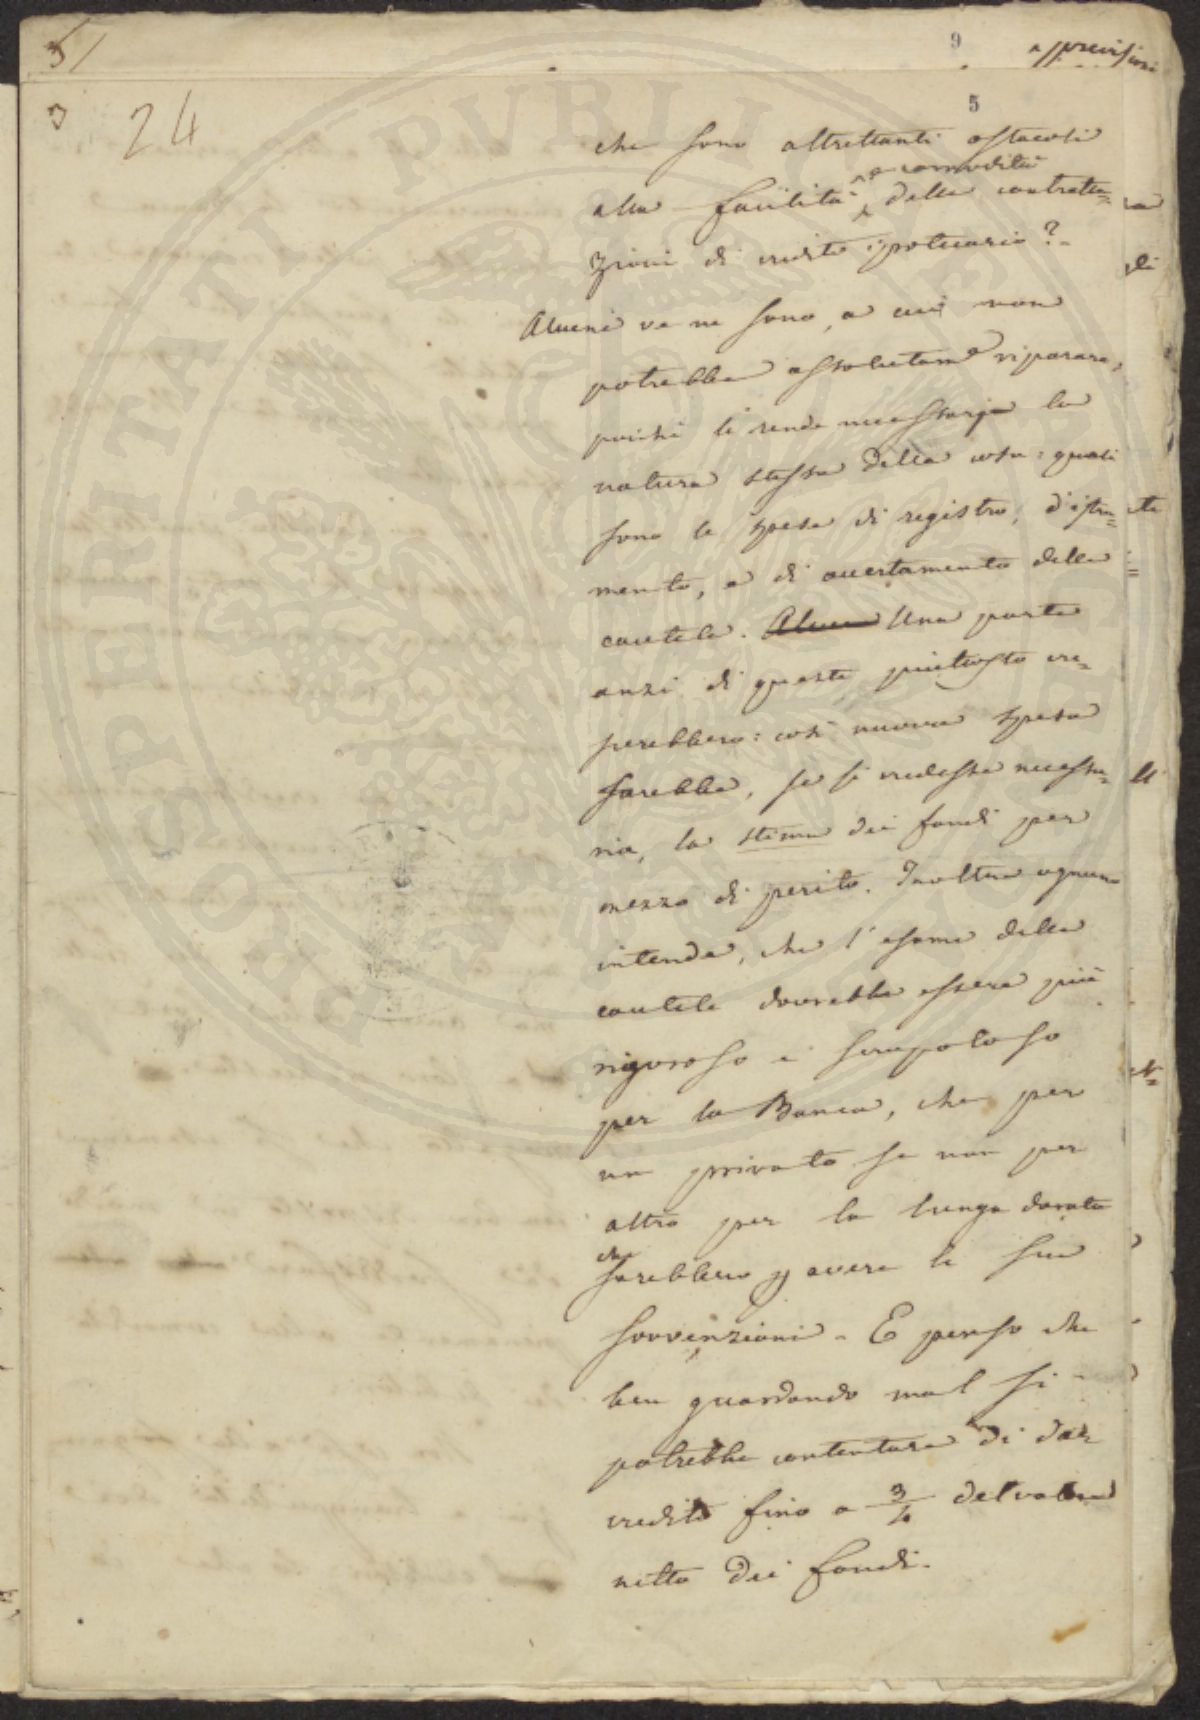 5
9
3
24
5
che sono altrettanti ostacoli
e comodità
alla facilità delle contratta=
zioni di credito ipotecario?-
Alcuni ve ne sono, a cui non
potrebbe assolutame riparare,
poichè li rende necessarje la
natura stessa della cosa: quali
sono le spese di registro, d'istru=
mento, e di accertamento delle
cautele. Alcun Una parte
anzi di queste piuttosto cre=
scerebbero: così nuova spesa
sarebbe, se si credesse necessa=
ria, la stima dei fondi per
mezzo di perito. Inoltre ognuno
intende, che l'esame delle
cautele dovrebbe essere più
rigoroso e scrupoloso
per la Banca, che per
un privato se non per
altro per la lunga durata
che
sarebbero avere le sue
sovvenzioni - E penso che
ben guardando mal si
potrebbe contentare di dar
credito fino a 3/4 del valore
netto dei fondi.
PROSPERITATI PVBLICAE